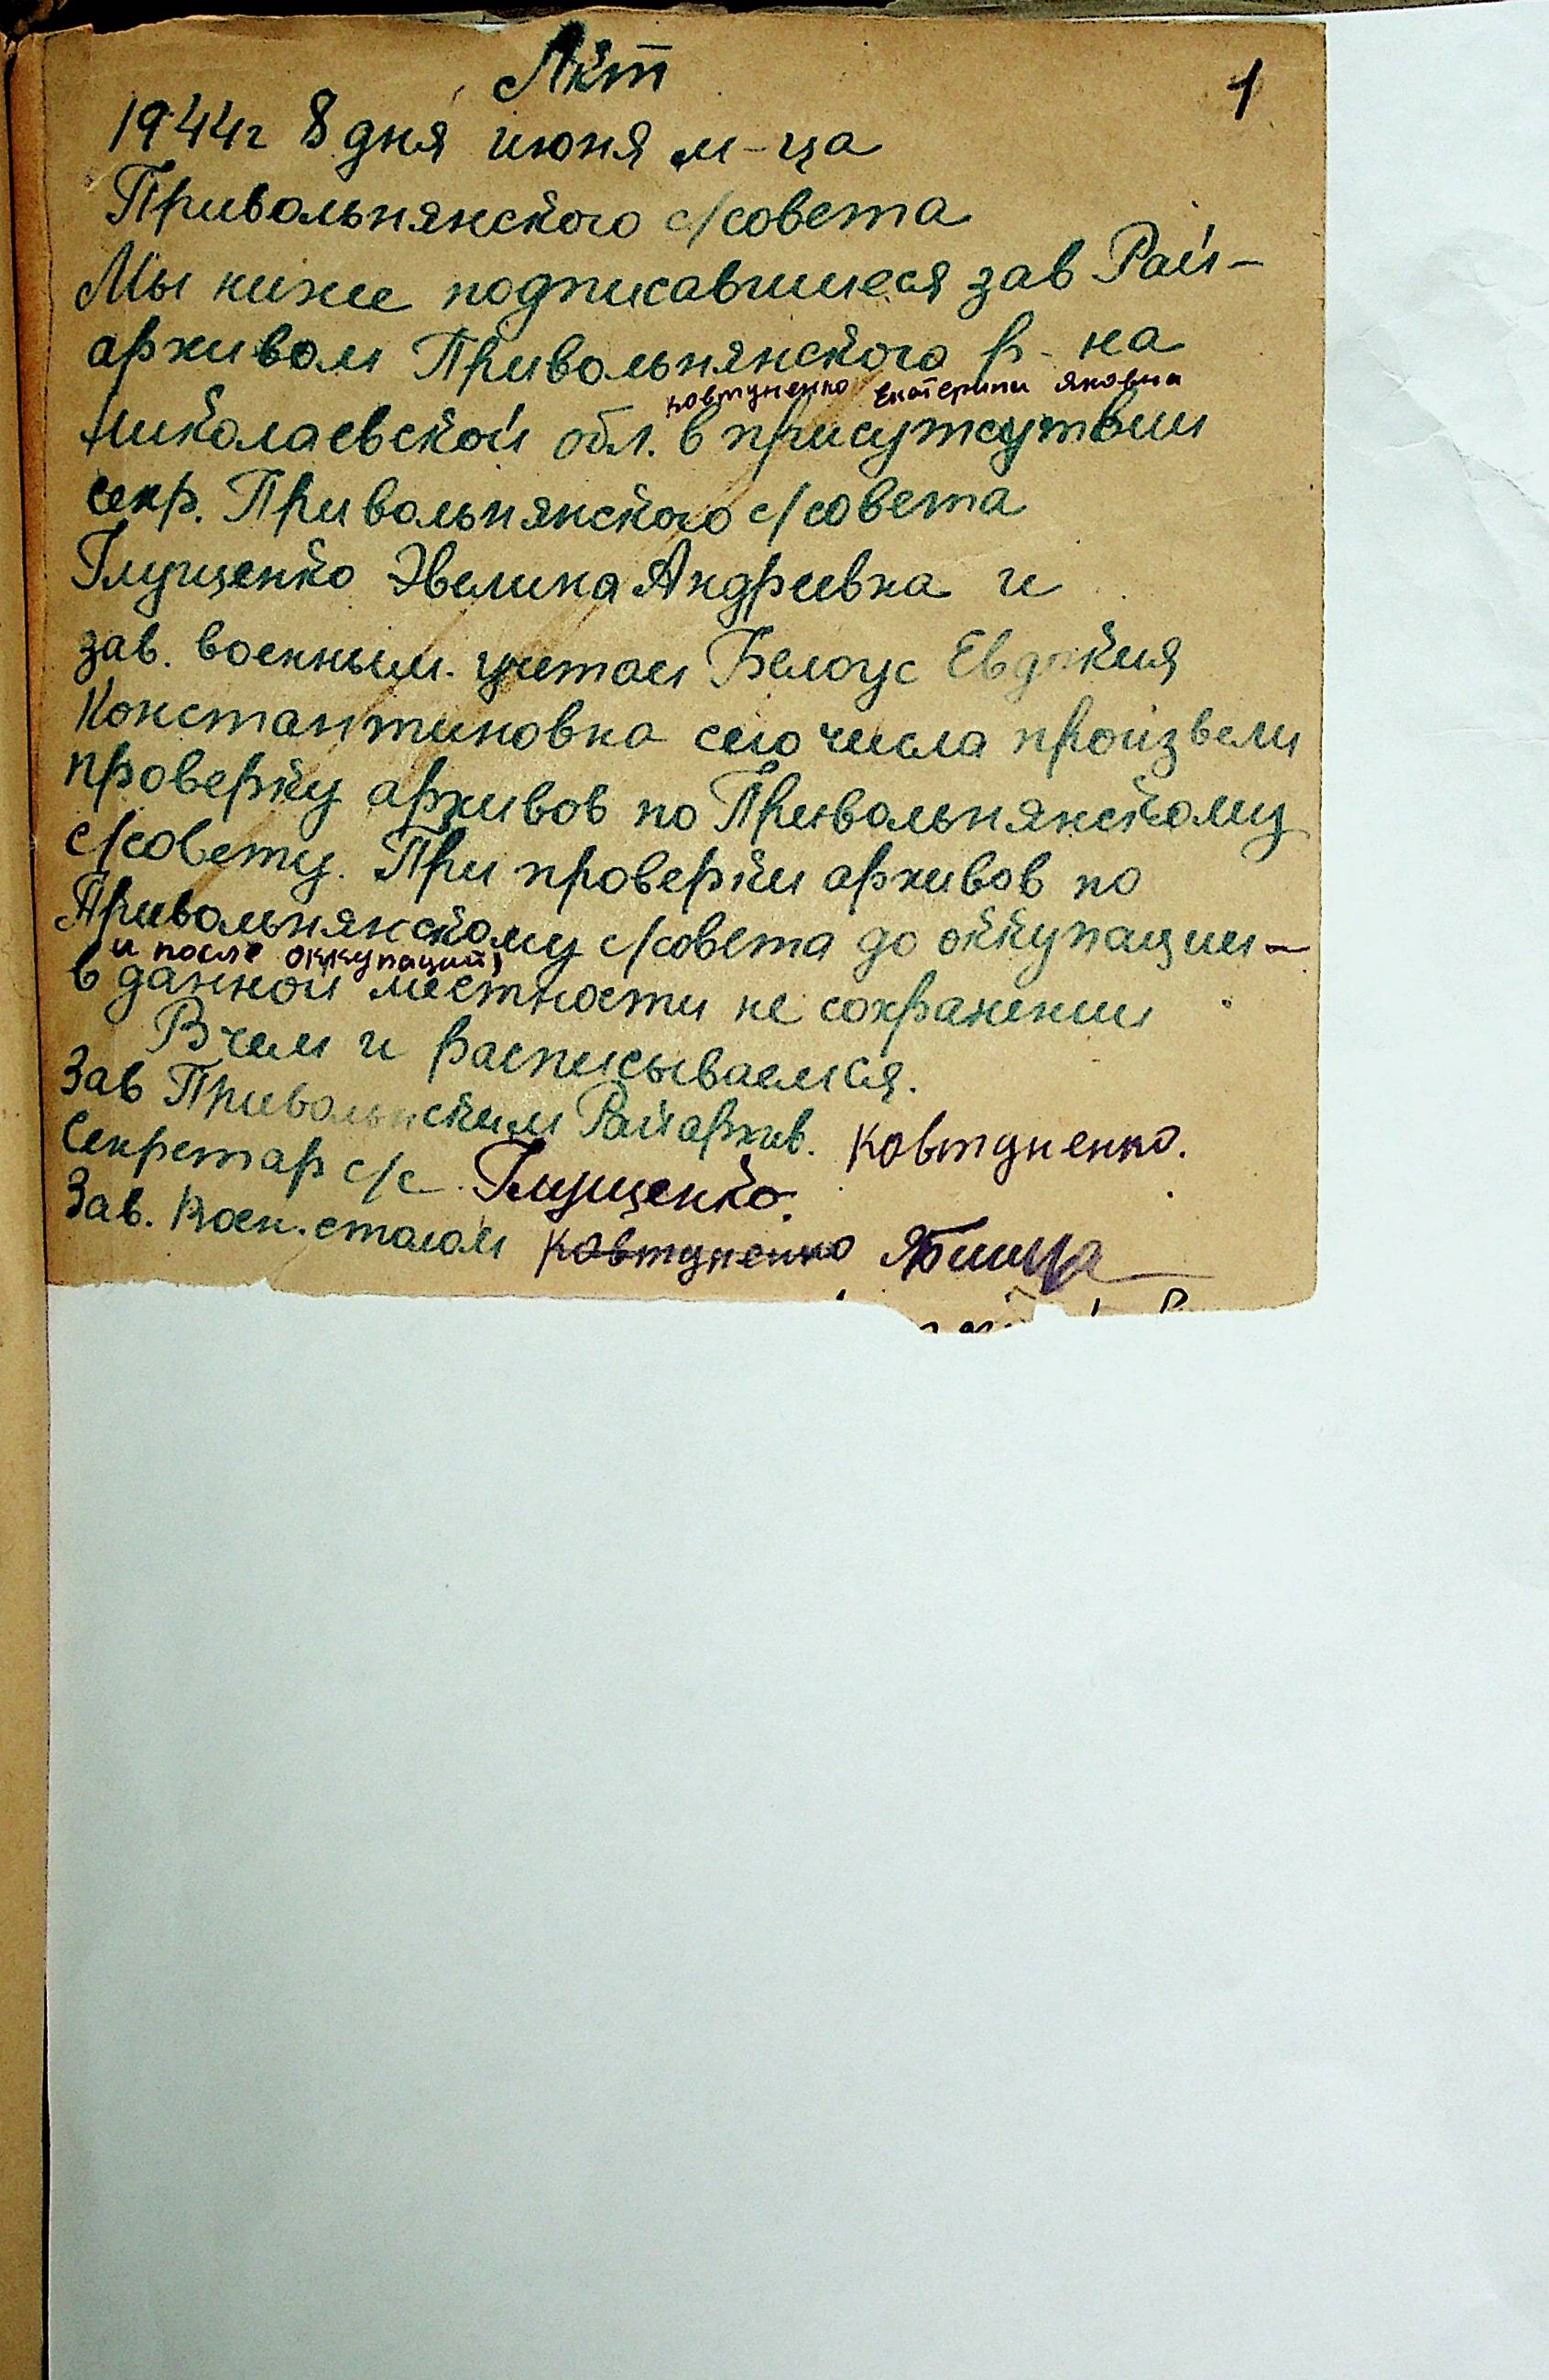 Акт
1
1944г 8 дня июня м-ца
Привольнянского с/совета
Мы ниже подписавшиеся зав Рай-
архивом Привольнянского р-на
Ковтуненко Екатерини Яковна
Николаевской обл. в присутсутвии
секр. Привольнянского с/совета
Глущенко Эвелина Андреевна и
зав. военным. учетом Белоус Евдокия
Константиновна сего числа произвели
проверку архивов по Привольнянскому
с/совету. При проверки архивов по
Привольнянскому с/совета до оккупации-
и после оккупаций,
в данной местности не сохранении
В чем и расписываемся.
Зав Привольнским Райархив. Ковтуненко.
Секретар с/с Глущенко.
Зав. Воен. столом Ковтуненко